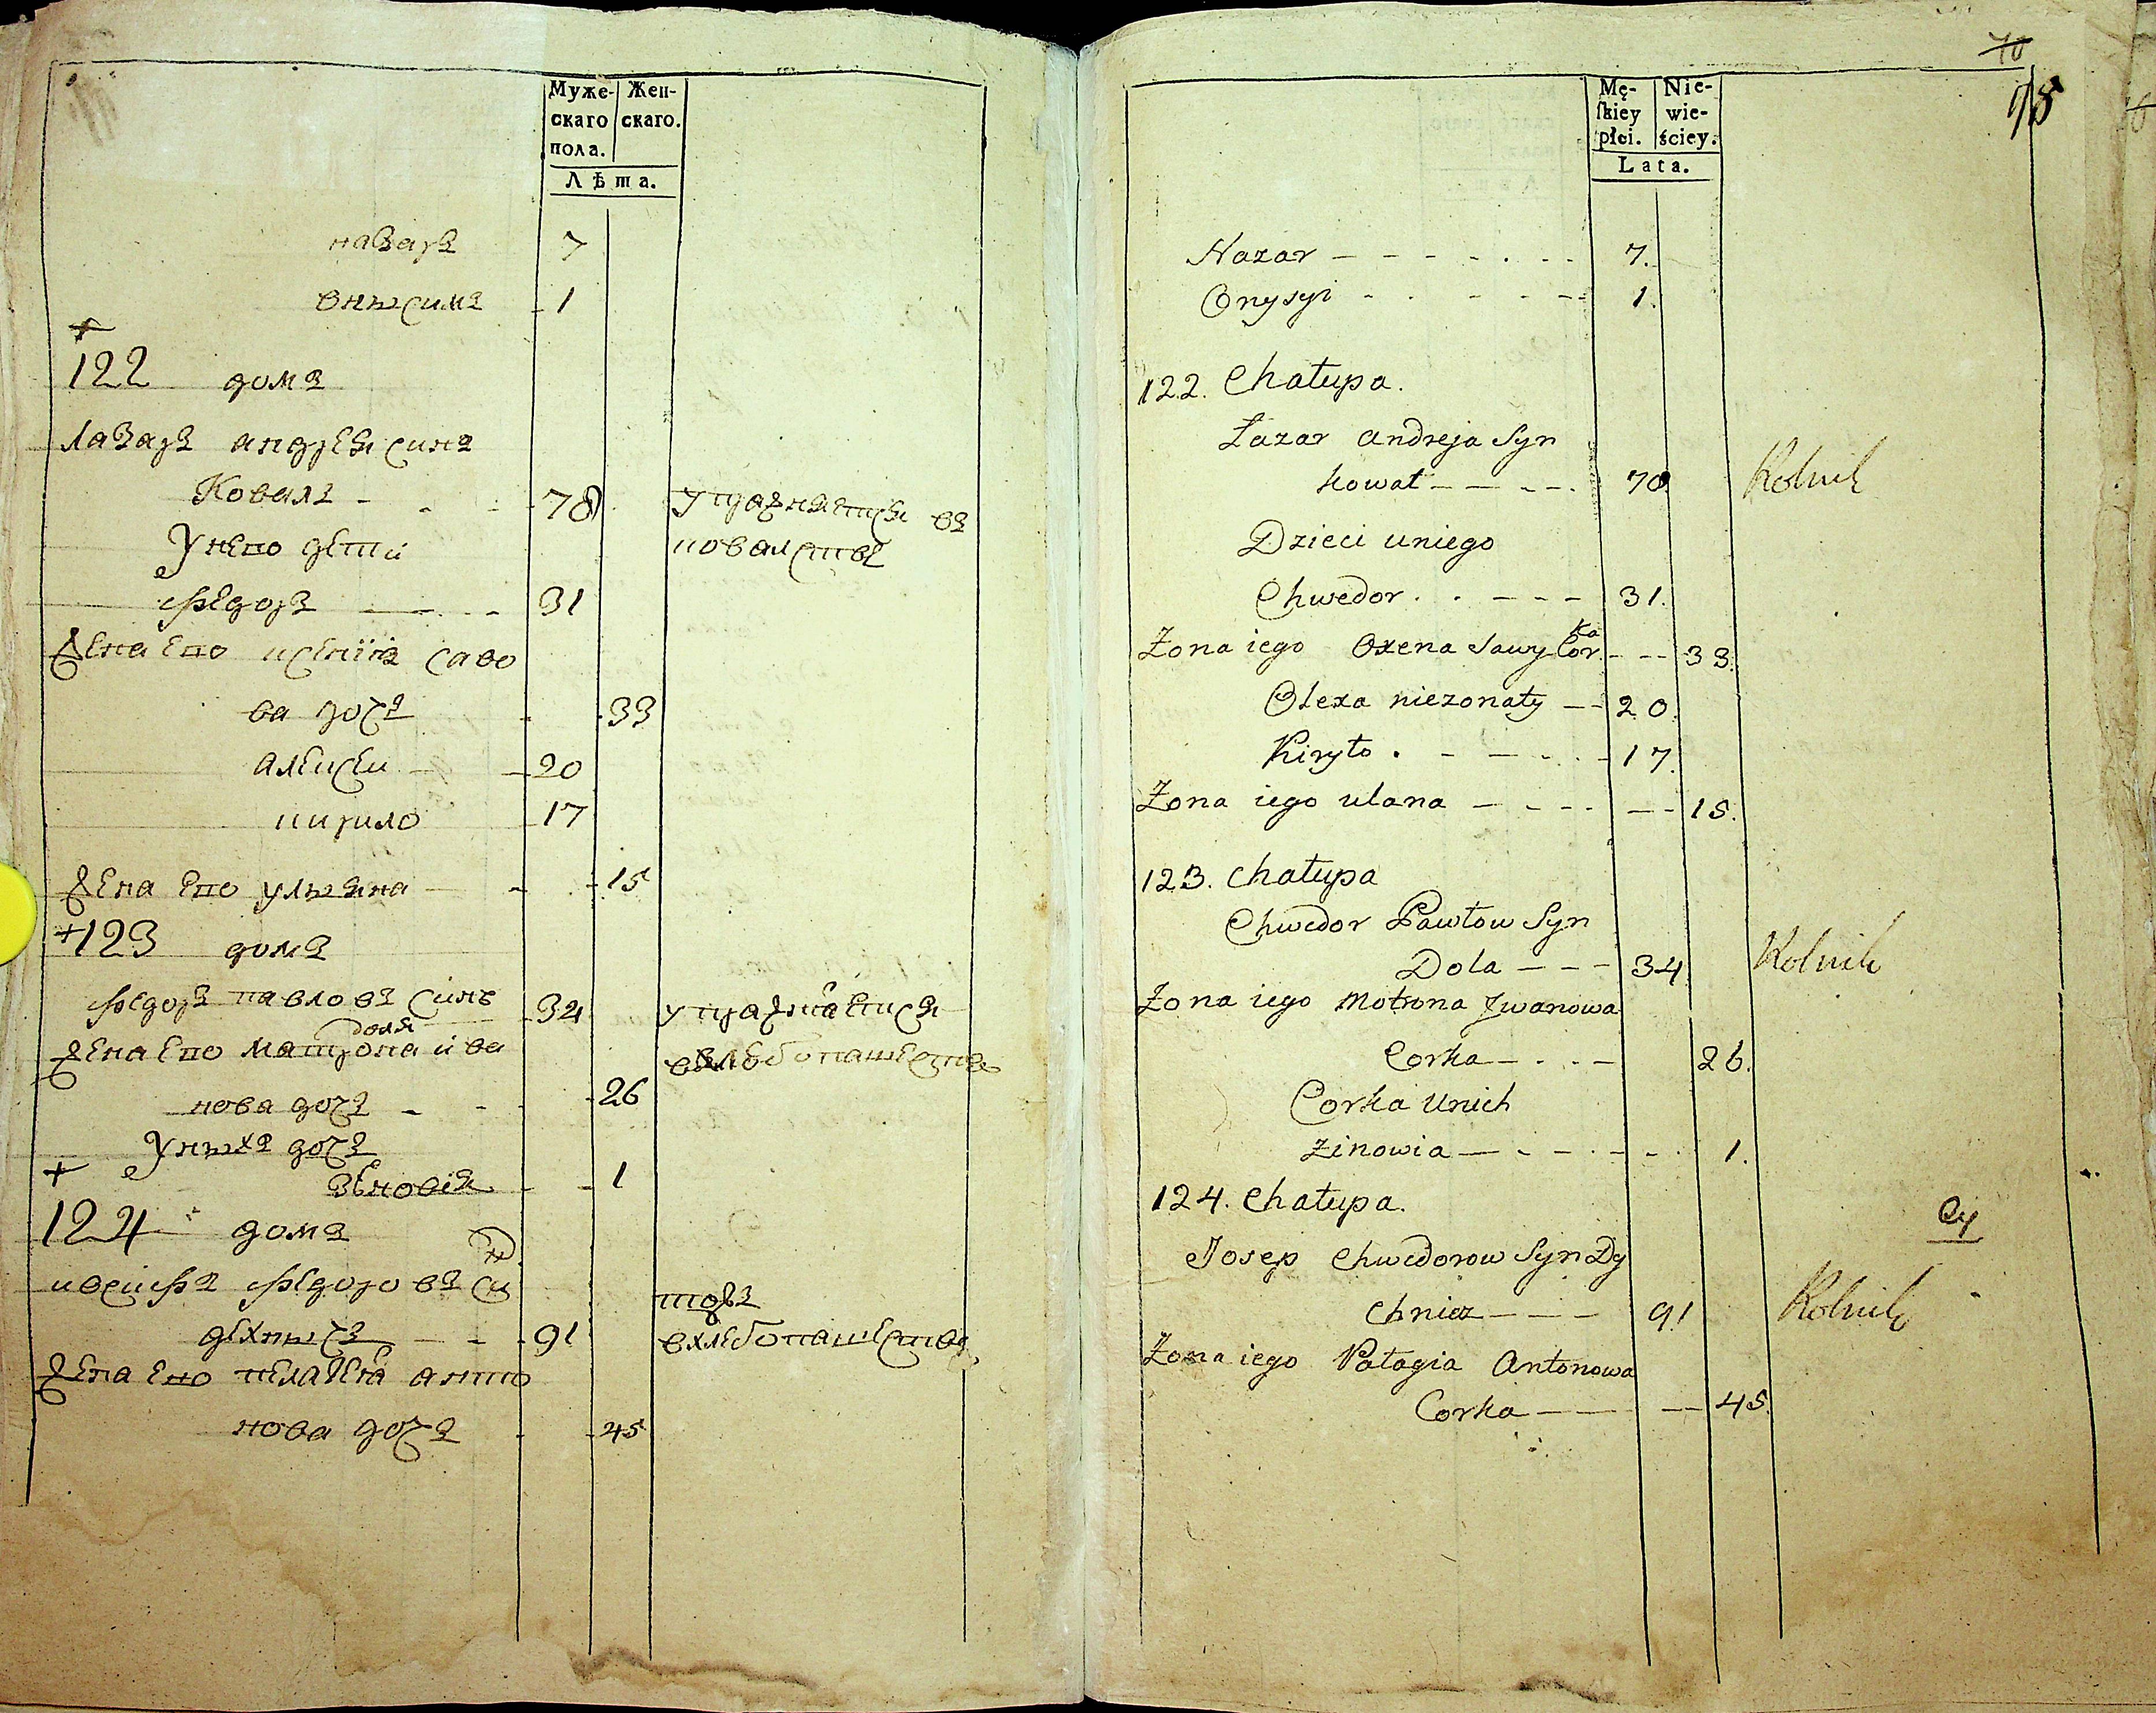 Муже-
скаго
пола.
Жен-
скаго.
Лѣта.
назаръ 7
онысимъ 1
122 домъ
Лазаръ андрѣя синъ
Коваль 78 упражняется въ
ковалствѣ
У него дети
федоръ 31
Жена его ксенiя саво
ва дочъ 33
алексеи 20
кирило 17
Жена его улыяна 15
+123 домъ
федоръ павловъ синъ 34 упражнается
доля
Жена его матрона ива
вхлебопашествѣ
нова дочъ 26
У ныхъ дочъ
зѣновiя 1
+
124 домъ
иосифъ федоровъ син
тожъ
дехнычъ 91 вхлебопашествѣ
Жена его пелагея анто
нова дочъ 45
70
75
Mę-
ſkiey
płci.
Nie-
wie-
ściey.
Lata.
Nazar 7.
Onysyi 1.
122. Chałupa.
Łazar andreja Syn
kowal 78 Rolnik
Dzieci uniego
Chwedor 31.
Żona iego Oxena Sawy Corka 33.
Olexa niezonaty 20.
Kiryło 17.
Żona iego ulana 15.
123. Chałupa
Chwedor Pawłow Syn
Dola 34 Rolnik
Żona iego Motrona Jwanowa
Corka 26.
Corka Unich
Zinowia 1.
124. Chałupa.
Josep Chwedorow Syn Dy
chnicz 91 Rolnik
Żona iego Pałagia Antonowa
Corka 45.